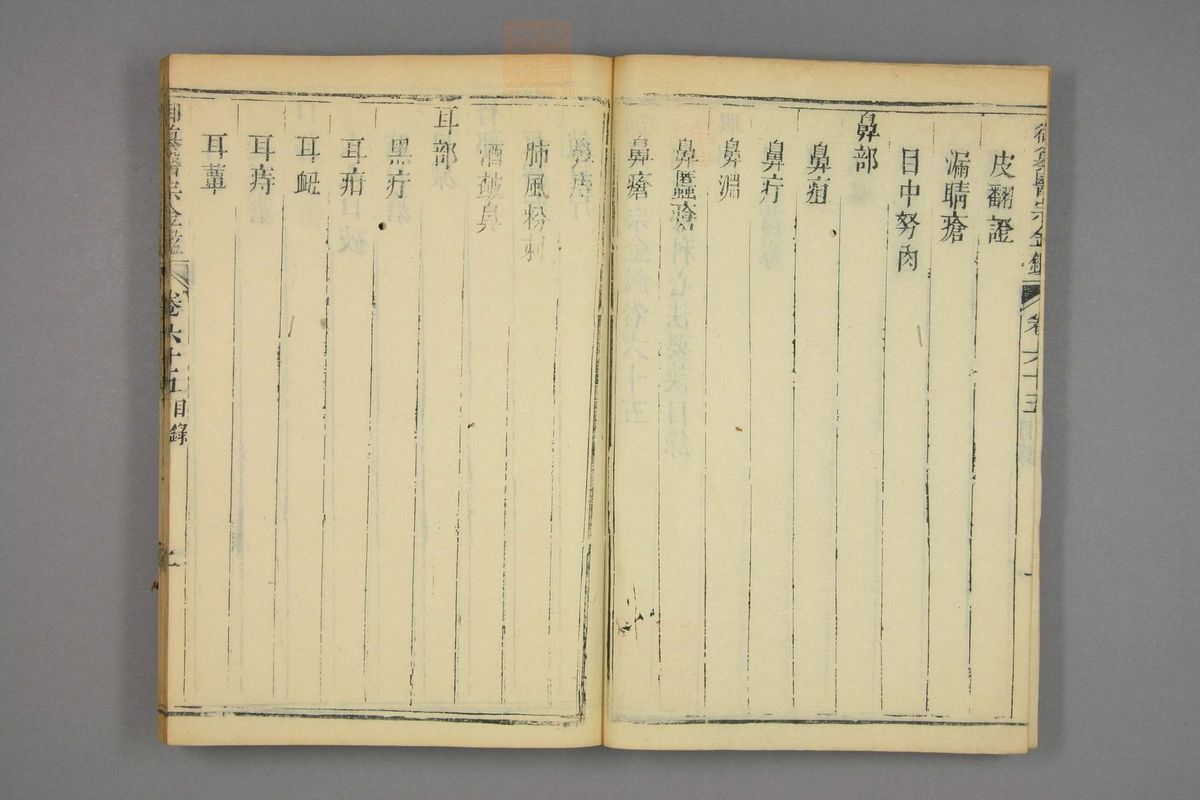 御纂醫宗金鑑
卷六十五
皮翻證
漏睛瘡
目中努肉
鼻部
鼻疽
鼻疔
鼻淵
鼻䘌瘡
鼻瘡
肺風粉刺
酒皶鼻
耳部
黑疔
耳疳
耳衄
耳痔
耳蕈
御纂醫宗金鑑
卷六十五目錄